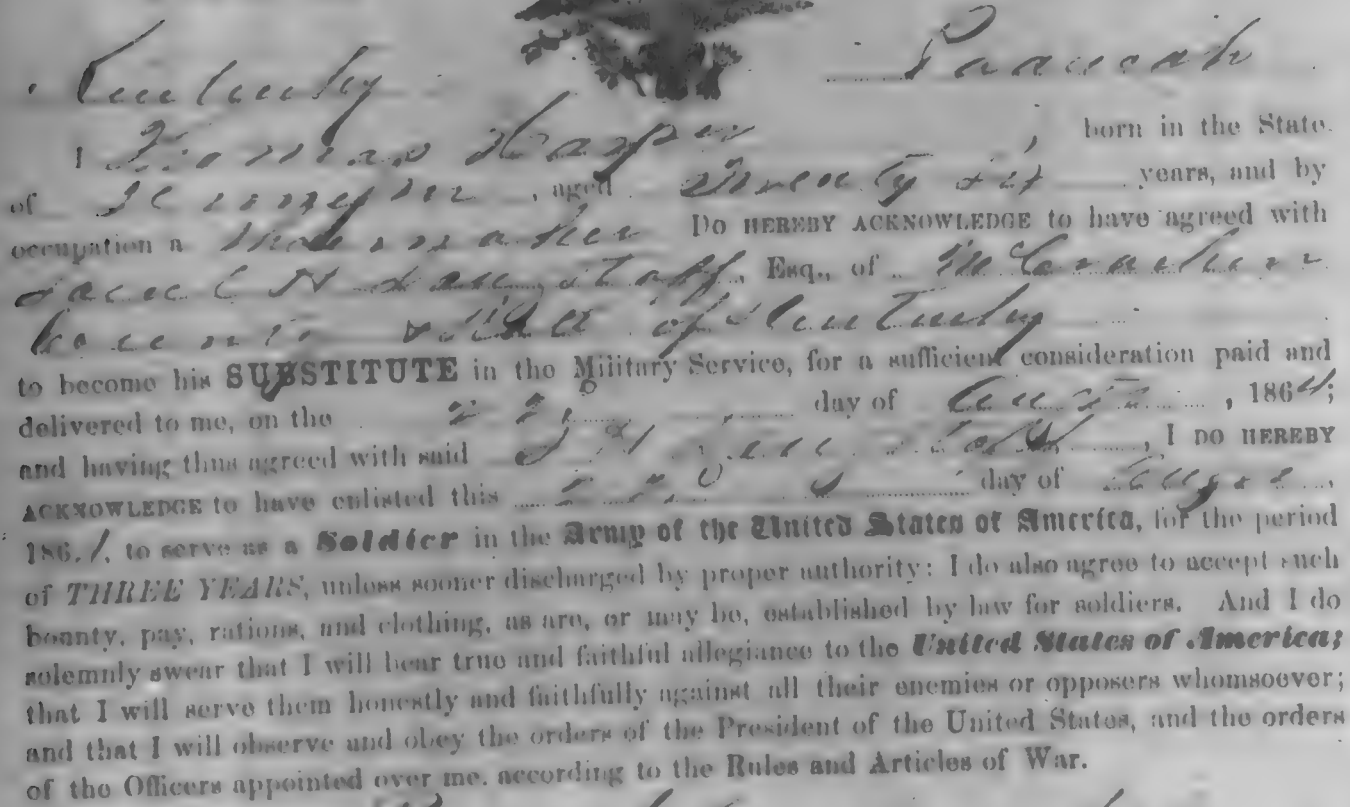 Kentucky Paducah
I Thomas Harper, born in the State
of, aged Twenty six years, and by
occupation a DO HEREBY ACKNOWLEDGE to have agreed with
Esq., of McCracken
County State of Kentucky
to become his SUBSTITUTE in the Military Service, for a sufficient consideration paid and
delivered to me, on the 22d day of, 1864;
and having thus agreed with said, I DO HEREBY
ACKNOWLEDGE to have enlisted this 22d day of August,
186, to serve as a Soldier in the Army of the United States of America, for the period
of THREE YEARS, unless sooner discharged by proper authority: I do also agree to accept such
bounty, pay, rations, and clothing, as are, or may be, established by law for soldiers. And I do
solemnly swear that I will bear true and faithful allegiance to the United States of America;
that I will serve them honestly and faithfully against all their enemies or opposers whomsoever;
and that I will observe and obey the orders of the President of the United States, and the orders
of the Officers appointed over me, according to the Rules and Articles of War.